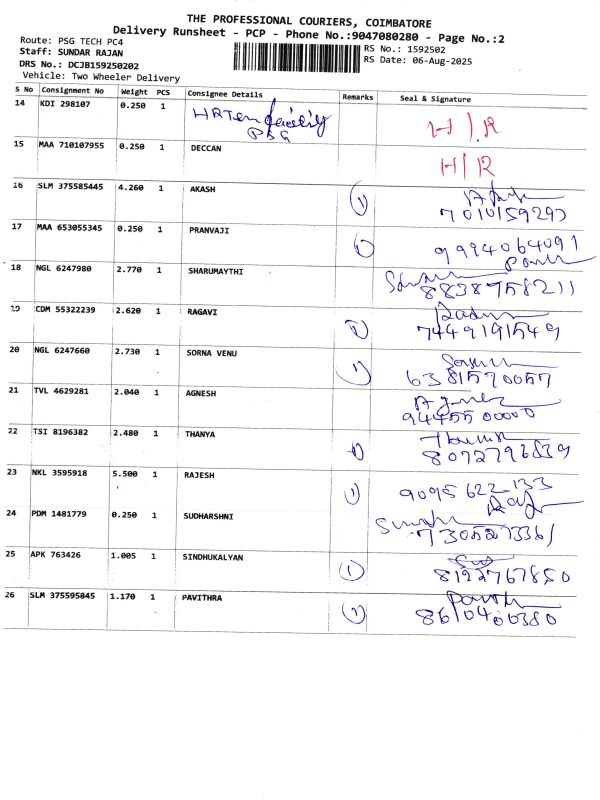 THE PROFESSIONAL COURIERS, COIMBATORE
Delivery Runsheet - PCP - Phone No.:9047080280 - Page No.:2
Route: PSG TECH PC4
Staff: SUNDAR RAJAN
DRS No.: DCJB159250202
Vehicle: Two Wheeler Delivery
RS No.: 1592502
RS Date: 06-Aug-2025
S No Consignment No Weight PCS Consignee Details Remarks Seal & Signature
14 KDI 298107 0.250 1 H/R
PSG
15 MAA 710107955 0.250 1 DECCAN H/R
16 SLM 375585445 4.260 1 AKASH (1)
7010159297
17 MAA 653055345 0.250 1 PRANVAJI (1) 9994064091
18 NGL 6247980 2.770 1 SHARUMAYTHI
8838958211
19 CDM 55322239 2.620 1 RAGAVI (1)
7449191549
20 NGL 6247660 2.730 1 SORNA VENU (1)
6381570057
21 TVL 4629281 2.040 1 AGNESH
9445500000
22 TSI 8196382 2.480 1 THANYA (1)
8072796839
23 NKL 3595918 5.500 1 RAJESH (1) 9095622133
24 PDM 1481779 0.250 1 SUDHARSHNI
7305273361
25 APK 763426 1.005 1 SINDHUKALYAN (1)
8122767850
26 SLM 375595845 1.170 1 PAVITHRA (1)
8610400380